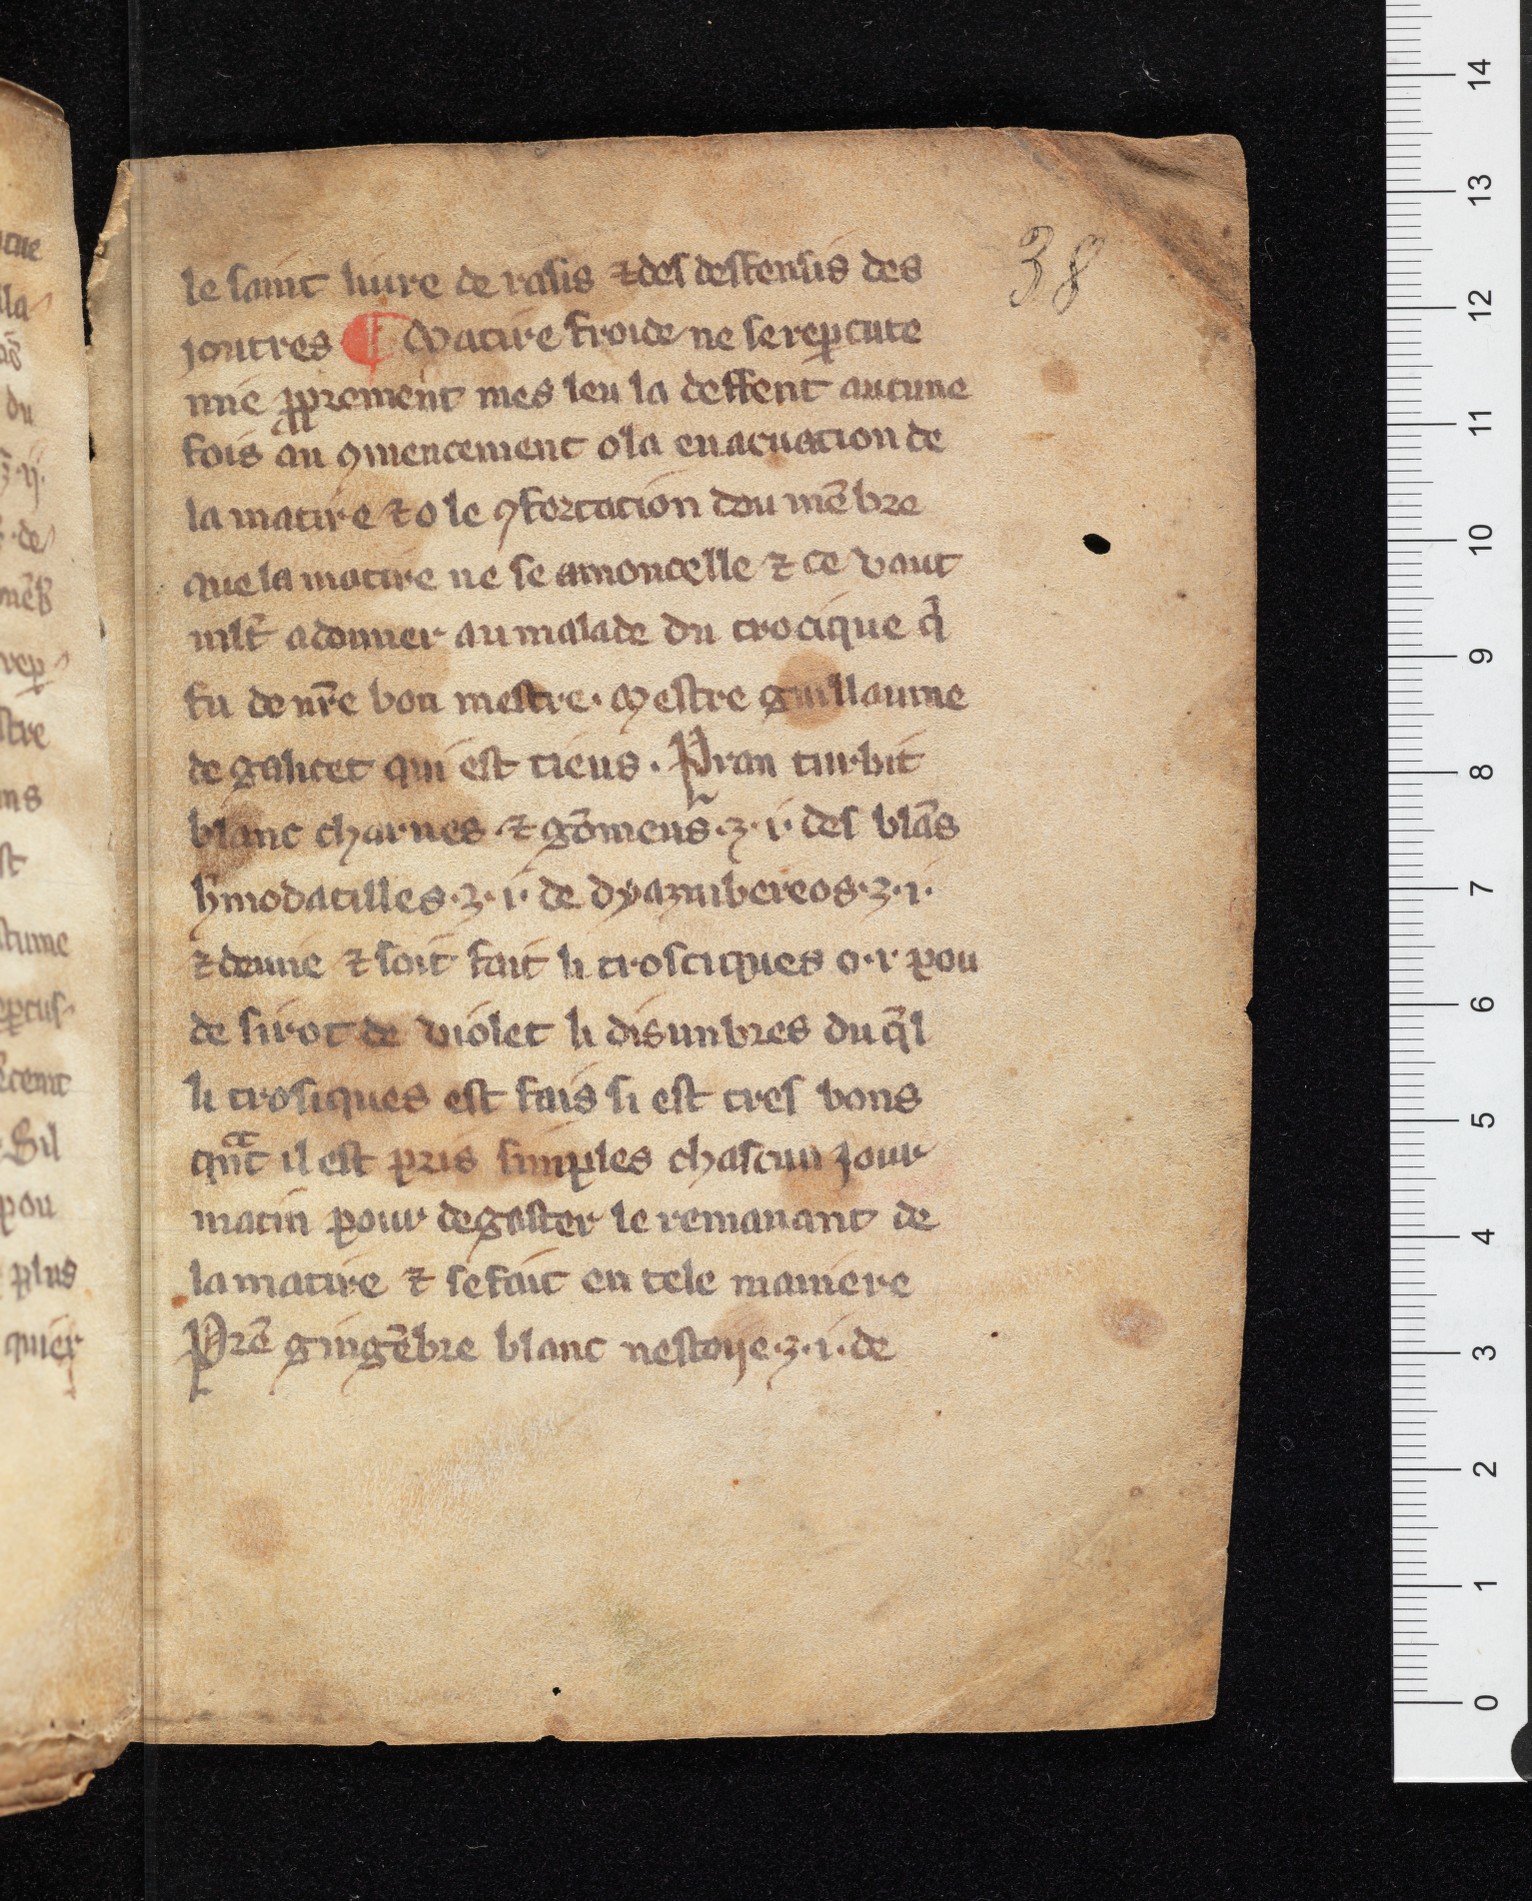 38
le saint liure de rasis ⁊ des deffensis des
joutres ¶ Matire froide ne se reꝑcute
mie ꝓprement mes leu la deffent aucune
fois au ꝯmencement o la euacuation de
la matire ⁊ o le ꝯfortation dou mẽbre
que la matire ne se amoncelle ⁊ ce vaut
mlt̃ a donner au malade du trocique q̃
fu de nr̃e bon mestre. Mestre guillaume
de galicet qui est tieus. Pran turbit
blanc charnes ⁊ gõmeus ʒ.i. des blãs
h̃modatilles.ʒ.i. de dyazinibereos.ʒ.i.
⁊ demie ⁊ soit fait li trosciques o .i. pou
de sirot de violet li disunbres du q̃l
li trosiques est fais si est tres bons
qᵃ̃t il est pris simples chascun jour
matin pour degaster le remanant de
la matire ⁊ se fait en tele maniere
Prẽ gingẽbre blanc nestoije.ʒ.i. de
14
13
12
11
10
9
8
7
6
5
4
3
2
1
0